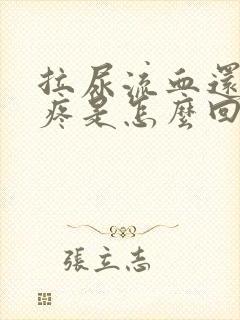 拉尿流血還
疼是怎麼回
張立志